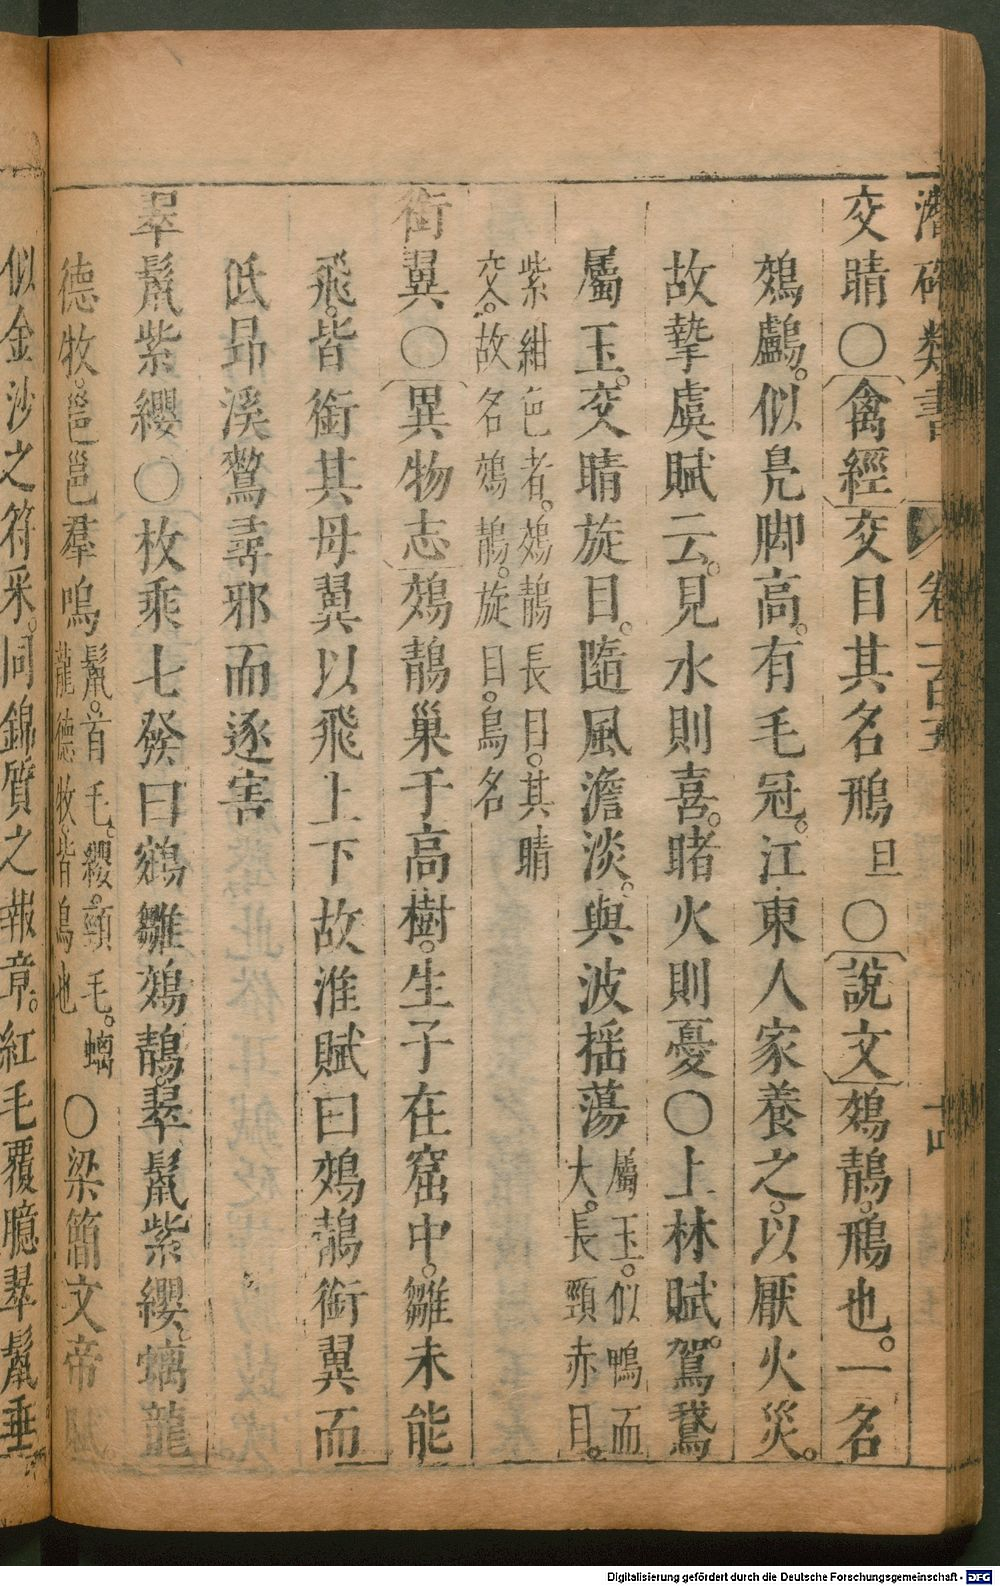 潛確類書 卷一百五 十四
交睛〇禽經交目其名鳽旦〇說文鵁鶄。鳽也。一名
鵁鸕。似鳧脚高。有毛冠。江東人家養之。以厭火災。
故摯虞賦云。見水則喜。睹火則憂〇上林賦。駕鵞
屬玉。交睛旋目。隨風澹淡。與波揺蕩屬玉。似鴨而大。長頸赤目。
紫紺色者。鵁鶄長目。其睛交。故名鵁鶄。旋目。鳥名
銜翼〇異物志鵁鶄巢于高樹。生子在窟中。雛未能
飛。皆銜其母翼以飛上下故淮賦曰鵁鶄銜翼而
低昂溪鷘尋邪而逐害
翠鬣紫纓〇枚乘七發曰鵷雛鵁鶄。翠鬣紫纓。螭龍
德牧。邕邕羣鳴鬣。首毛。纓。頸毛。螭龍德牧皆鳥也〇梁簡文帝賦。
似金沙之符采。同錦質之報章。紅毛覆臆翠鬣垂
Digitalisierung gefördert durch die Deutsche Forschungsgemeinschaft - DFG